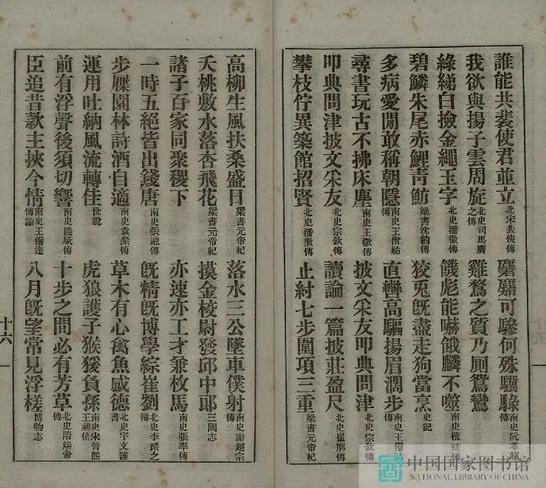 誰能共裴使君並立 北宋裴俠傳
麏麚可驂何殊驥騄 南史阮孝緒傳
我欲與揚子雲周旋 北史司馬膺之傳
雞鶩之質乃厠鴛鸞
綠綈白撿金繩玉字 北史潘徽傳
饑彪能嚇餓麟不噬 南史傳
碧鱗朱尾赤鯉靑魴 梁書沈約傳
狡兎既盡走狗當烹 史記
多病愛閒敢稱朝隱 南史王僧祐傳
直轡高驅揚眉濶步 南史王僧傳
尋書玩古不拂床塵 南史王微傳
披文采友叩典問津 北史宗欽傳
叩典問津披文采友 北史宗欽傳
讀論一篇披莊盈尺 北史崔廓傳
攀枝佇異築館招賢 北史潘徽傳
止紂七步圍項三重 梁書元帝紀
高柳生風扶桑盛日 梁書元帝紀
落水三公墜車僕射 南史謝超宗傳
夭桃敷水落杏飛花 梁書元帝紀
摸金校尉發邱中郎 三國志
諸子百家同聚稷下
亦速亦工才兼枚馬 南史張率傳
一時五絕皆出錢唐 南史張融傳
旣精旣博學綜崔劉 北史李琰之傳
步屧園林詩酒自適 南史袁粲傳
草木有心禽魚感德 北史宇文護傳
運用吐納風流轉佳 世說
虎狼護子猴猨負孫 南史宋晉熙王昶傳
前有浮聲後須切響 南史陸厥傳
十步之間必有芳草 北史隋煬帝紀
臣追昔款主挾今情 南史王僧達傳論
八月旣望常見浮槎 博物志
十六
中国国家图书馆